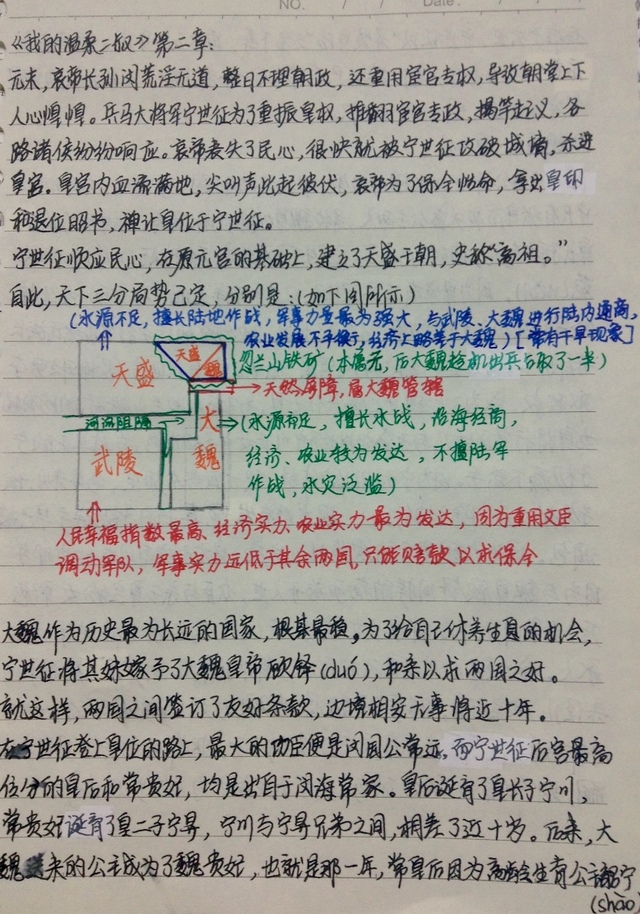 NO.
Date.
《我的温柔二叔》第二章:
元末,哀帝长孙闵荒淫无道,整日不理朝政,还重用宦官专权,导致朝堂上下
人心惶惶。兵马大将军宁世征为了重振皇权,推翻宦官专政,揭竿起义,各
路诸侯纷纷响应。哀帝丧失了民心,很快就被宁世征攻破城墙,杀进
皇宫。皇宫内血流满地,尖叫声此起彼伏,哀帝为了保全性命,拿出皇印
和退位昭书,禅让皇位于宁世征。
宁世征顺应民心,在原元宫的基础上,建立了天盛王朝,史称“高祖。”
自此,天下三分局势已定,分别是:(如下图所示)
(水源不足,擅长陆地作战,军事力量最为强大,与武陵、大魏进行陆内通商,
农业发展不平衡,经济上略差于大魏)[常有干旱现象]
天盛
天盛
魏
忽兰山铁矿(本属元,后大魏趁机出兵占取了一半)
天然屏障,属大魏管辖
河流阻隔
大
魏
(水源充足,擅长水战,沿海经商,
经济、农业较为发达,不擅陆军
作战,水灾泛滥)
武陵
人民幸福指数最高、经济实力、农业实力最为发达,因为重用文臣
调动军队,军事实力远低于其余两国,只能赔款以求保全
大魏作为历史最为长远的国家,根基最稳,为了给自己休养生息的机会,
宁世征将其妹嫁予了大魏皇帝(duó),和亲以求两国之好。
就这样,两国之间签订了友好条款,边境相安无事将近十年。
在宁世征登上皇位的路上,最大的功臣便是闵国公常远,而宁世征后宫最高
位分的皇后和常贵妃,均是出自于闵海常家。皇后诞育了皇长子宁川,
常贵妃诞育了皇二子宁昇,宁川与宁昇兄弟之间,相差了近十岁。后来,大
魏送来的公主成为了魏贵妃,也就是那一年,常皇后因为高龄生育公主韶宁
(sháo)